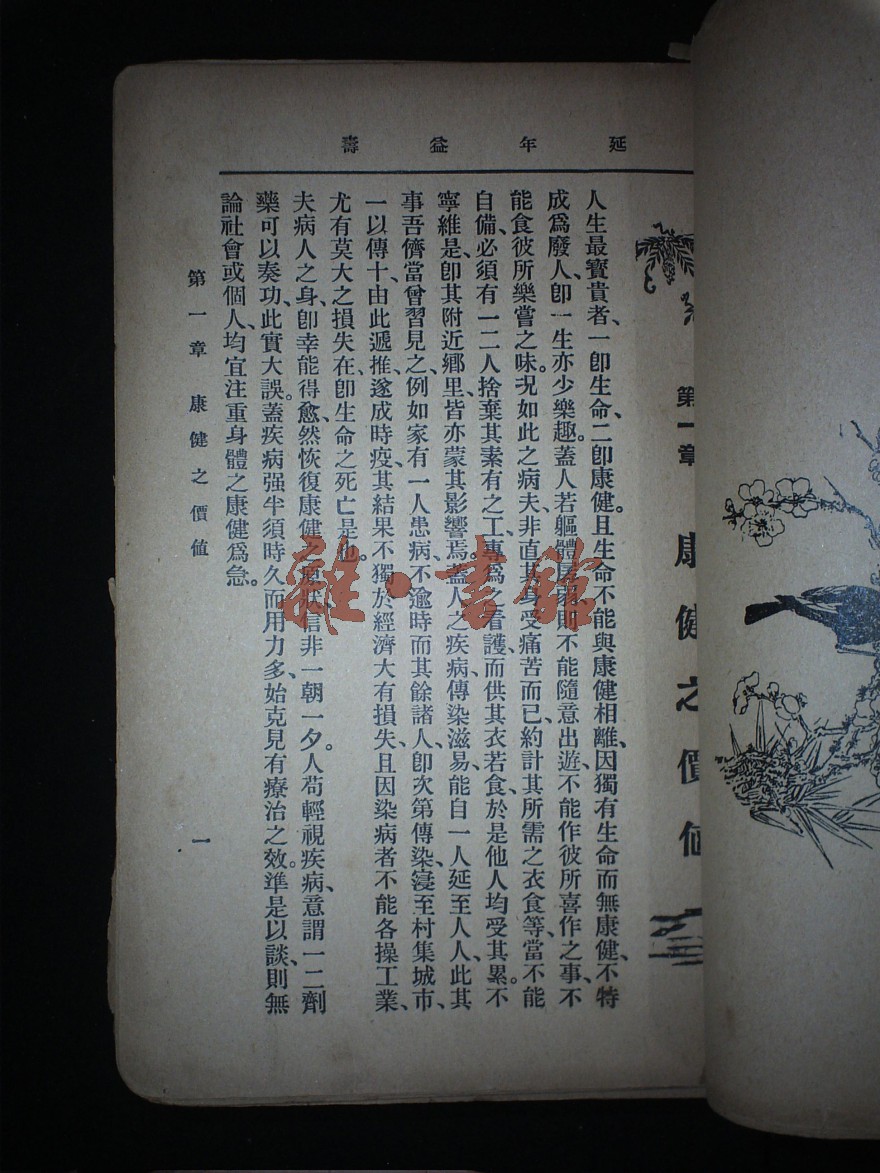 延年益壽
第一章 康健之價值
人生最寶貴者、一卽生命、二卽康健。且生命不能與康健相離、因獨有生命而無康健、不特
成爲廢人、卽一生亦少樂趣。蓋人若軀體孱弱、則不能隨意出遊、不能作彼所喜作之事、不
能食彼所樂嘗之味。况如此之病夫、非直其身受痛苦而已、約計其所需之衣食等、當不能
自備、必須有一二人捨棄其素有之工、專爲之看護、而供其衣若食、於是他人均受其累。不
寧維是、卽其附近鄉里、皆亦蒙其影響焉。蓋人之疾病、傳染滋易、能自一人延至人人、此其
事吾儕當曾習見之、例如家有一人患病、不逾時而其餘諸人、卽次第傳染、寖至村集城市、
一以傳十、由此遞推、遂成時疫、其結果不獨於經濟大有損失、且因染病者不能各操工業、
尤有莫大之損失在、卽生命之死亡是也。
夫病人之身、卽幸能得愈、然恢復康健之原狀、信非一朝一夕。人苟輕視疾病、意謂一二劑
藥可以奏功、此實大誤。蓋疾病强半須時久而用力多、始克見有療治之效。準是以談、則無
論社會或個人、均宜注重身體之康健爲急。
第一章 康健之價值
一
雜·書館